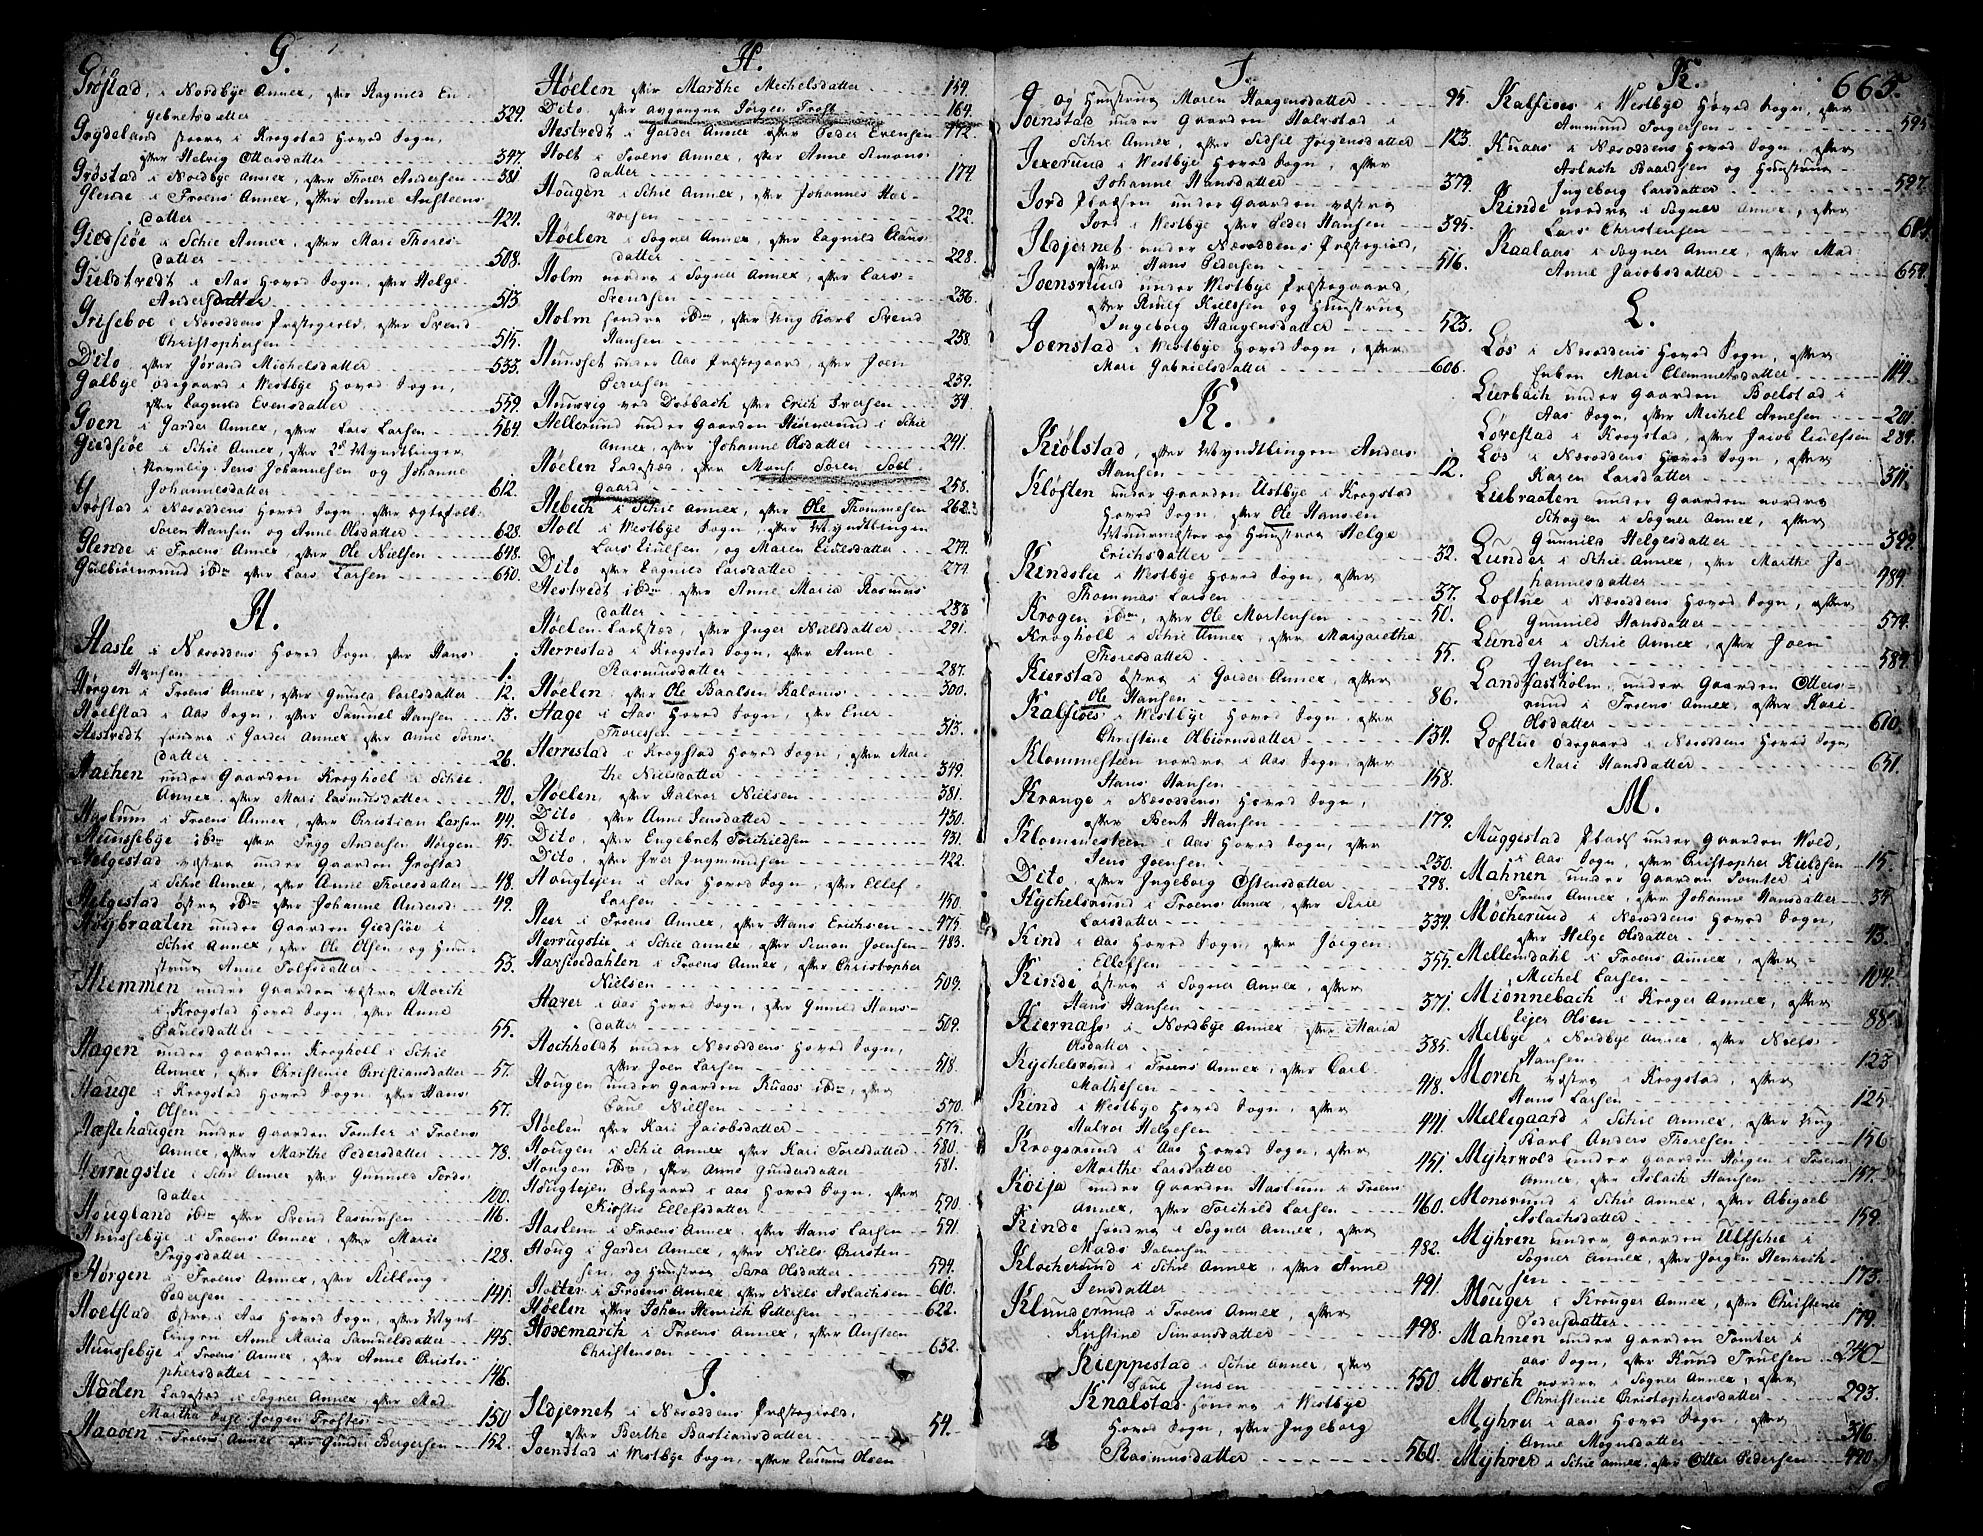 G.
Grøstad, i Nordbye Annex, efter Ragnild En
gebretsdatter 329.
Sogn,
efter Helvig Ottersdatter 347.
Grøstad i Nordbye Annex, efter Thorer Andersen 381
Glende i Froens Annex, efter Anne Ansteens
datter 424.
Giedsiøe i Schie Annex, efter Mari Thores
datter 508.
Guldtvedt i Aas Hoved Sogn, efter Helge
Andersdatter 513.
Griseboe i Næsoddens Præstegield, efter Svend
Christophersen 515.
Dito efter Jørand Michelsdatter 533.
Galbye ødegaard i Westbye Hoved Sogn,
efter Ragnild Evensdatter 559.
Goen i Garder Annex, efter Lars Larsen 564.
Giedsiøe i Schie Annex, efter 2de Myndtlinger
Navnlig Jens Johannesen og Johanne
Johannesdatter 612.
Grøstad i Næsoddens Hoved Sogn efter ægtefolk
Søren Hansen og Anne Olsdatter 628.
Glende i Froens Annex, efter Ole Nielsen 648.
Gulbiørnrund ibdm efter Lars Larsen 650.
H.
Hasle i Næsoddens Hoved Sogn, efter Hans
Hansen 1.
Hørgen i Froens Annex, efter Gunild Carlsdatter 12.
Hoelstad i Aas Sogn, efter Samuel Hansen 13.
Hestvedt søndre i Garder Annex efter Anne
datter 26.
Hachen under Gaarden Kroghoel i Schie
Annex, efter Mari Rasmusdatter 40.
Haslum i Froens Annex, efter Christian Larsen 44.
Hunssebye ibdm efter Trygg Andersen Hørgen 45.
Helgestad væstre under Gaarden Grøstad
i Schie Annex, efter Anne Thoresdatter 48.
Helgestad østre ibdm efter Johanne Andersd: 49.
Høybraaten under Gaarden Giedsiøe i
Schie Annex, efter Ole Olsen, og Huu
strue Anne Tolfsdatter 53.
Hiemmen under Gaarden væstre Morch
i Krogstad Hoved Sogn, efter Anne
Paulsdatter 55.
Hagen under Gaarden Krogholl i Schie
Annex, efter Christenie Christiansdatter 57.
Hauge i Krogstad Hoved Sogn, efter Hans
Olsen 57.
Hæstehaugen under Gaarden Tomter i Froens
Annex, efter Marthe Pedersdatter 78.
Herrugstie i Schie Annex efter Gunnild Tords
datter 100.
Hougland ibdm efter Svend Rasmusen 116.
Hunssebye i Froens Annex, efter Marie
Tryggsdatter 128.
Hørgen i Froens Annex, efter Killing
Pedersen 141.
Hoelstad østre i Aas Hoved Sogn, efter Mynt
lingen Anne Maria Samuelsdatter 145.
Hunssebye i Froens Annex, efter Anne Christo
phersdatter 146.
Høelen Ladestæd i Sogner Annex efter Mad
Martha Jørgen Trostes 150
i Froens Annex efter Gunder Bergersen 152.
H.
Høelen efter Marthe Michelsdatter 159.
Dito, efter avgangne Jørgen Trost 164.
Hestvedt i Garder Annex efter Peder Evensen 172.
Holt i Froens Annex, efter Anne Simons
datter 174.
Hougen i Schie Annex, efter Johannes Hal
vorsen 222.
Høelen i Sogner Annex, efter Ragnild Claus
datter 228.
Holm nordre i Sogner Annex, efter Lars
Svendsen 236.
Holm søndre ibdm, efter Ung Karl Svend
Hansen 238.
Huusset under Aas Præstegaard, efter Joen
Persen 239.
Huusvig ved Drøbach efter Erich Iversen 34.
Hellerund under Gaarden i Schie
Annex, efter Johanne Olsdatter 241.
Høelen Ladestæd, efter Mons. Søren Søel
gaard 258.
Hebech i Schie Annex, efter Ole Thommesen 262.
Holt i Westbye Sogn, efter Myndtlingen
Lars Eiulfsen, og Maren Eiulfsdatter 274.
Dito efter Ragnild Larsdatter 274.
Hestvedt ibdm efter Anne Maria Rasmus
datter 283
Høelen Ladestæd, efter Inger Nielsdatter 291.
Herrestad i Krogstad Sogn, efter Anne
Rasmusdatter 287.
Høelen, efter Ole Paulsen Kalvnes 300.
Hage i Aas Hoved Sogn, efter Ener
Thoresen 313.
Herrestad i Krogstad Hoved Sogn, efter Mar
the Nielsdatter 349.
Høelen, efter Halvor Nielsen 381.
Dito, efter Anne Jensdatter 430.
Dito, efter Engebret Torchildsen 431.
Dito, efter Iver Ingmundsen 422.
Hougtejen i Aas Hoved Sogn, efter Ellef
Larsen 450.
Heer i Froens Annex, efter Hans Erichsen 475.
Herrugstie i Schie Annex, efter Simon Joensen 483.
i Froens Annex, efter Christopher
Nielsen 509.
Haver i Aas Hoved Sogn, efter Gunild Hans
datter 509.
Hochholdt under Næsoddens Hoved Sogn,
efter Joen Larsen 518.
Hougen under Gaarden Kuaas ibdm, efter
Poul Nielsen 570.
Høelen efter Kari Jacobsdatter 573.
Hougen i Schie Annex efter Kari Toresdatter 580.
Hougen ibdm, efter Anne Gundersdatter 581.
Hougtejen ødegaard i Aas Hoved Sogn, efter
Kirsti Ellefsdatter 590.
Haslem i Froens Annex, efter Hans Larsen 591.
Houg i Garder Annex, efter Niels Christen
sen, og Huustrue Sara Olsdatter 594.
Holter i Froens Annex, efter Niels Aslachsen 610.
Høelen efter Johan Henrich Pettersen 622.
Hoxmarck i Froens Annex, efter Ansteen
Christensen 632.
J.
Ildjernet i Næsoddens Præstegield,
efter Berthe Bastiansdatter 54.
Joenstad i Westbye Sogn, efter Rasmus Olsen
J.
og Huustrue Maren Haagensdatter 95.
Joenstad under Gaarden Halvstad i
Schie Annex, efter Sidsel Jørgensdatter 123.
Jexerund i Westbye Hoved Sogn, efter
Johanne Hansdatter 374.
Jord Pladsen under Gaarden væstre
Jord i Westbye efter Peder Hansen 395.
Ildjernet under Næsoddens Præstegield,
efter Hans Pedersen 516.
Joensrund under Westbye Præstegaard,
efter Rolf Nielssen og Huustrue
Ingeborg Haagensdatter 523.
Joenstad i Westbye Hoved Sogn, efter
Mari Gabrielsdatter 606.
K.
Kiølstad, efter Myndtlingen Anders
Hansen 12.
Kløften under Gaarden Ustbye i Krogstad
Hoved Sogn, efter Ole Hansen
Muurmester og Huustrue Helge
Erichsdatter 32.
Kindslie i Westbye Hoved Sogn, efter
Thommas Larsen 37.
Krogen ibdm, efter Ole Mortensen 50.
Krogholl i Schie Annex, efter Margaretha
Thoresdatter 55.
Kierstad østre i Garder Annex, efter
Ole Hansen 86.
Kalsiøes i Westbye Hoved Sogn, efter
Christine Asbiørnsdatter 134.
Klommesteen nordre i Aas Sogn, efter
Hans Hansen 158.
Krange i Næsoddens Hoved Sogn,
efter Bent Hansen 179.
Klommesteen i Aas Hoved Sogn, efter
Jens Joensen 230.
Dito efter Ingeborg Ostensdatter 298.
Kychelsrund i Froens Annex, efter Siri
Larsdatter 334.
Kind i Aas Hoved Sogn, efter Jørgen
Ellefsen 355.
Kinde østre i Sogner Annex, efter
Hans Hansen 371.
Kiernass i Nordbye Annex efter Maria
Olsdatter 385.
Kychelsrund i Froens Annex, efter Carl
Mathisen 418.
Kind i Westbye Hoved Sogn, efter
Halvor Helgesen 441.
Krogsrund i Aas Hoved Sogn, efter
Marthe Larsdatter 451.
Koija under Gaarden Haslum i Froens
Annex, efter Torchild Larsen 460.
Kinde søndre i Sogner Annex, efter
Mads Halvorsen 482.
Klocherund i Schie Annex, efter Anne
Jensdatter 491.
Klunderund i Froens Annex, efter
Kirstine Simonsdatter 498.
Kieppestad i Schie Annex, efter
Poul Jensen 550
Knalstad søndre i Westbye
Hoved Sogn, efter Ingeborg
Rasmusdatter 560.
K. 665.
Kalsiøes i Westbye Hoved Sogn, efter
Ammund Torgersen 595.
Kuaas i Næsoddens Hoved Sogn, efter
Aslach Baardsen og Huustrue
Ingeborg Larsdatter 597.
Kinde nordre i Sogner Annex, efter
Lars Christensen 604.
Kaalaas i Sogner Annex, efter Mad
Anne Jacobsdatter 654.
L.
Løs i Næsoddens Hoved Sogn, efter
Enken Mari Clemmetsdatter 114.
Lierbach under Gaarden Boelstad i
Aas Sogn, efter Michel Arnesen 201.
Løvestad i Krogstad, efter Jacob Eiulfsen 284.
Løs i Næsoddens Hoved Sogn, efter
Karen Larsdatter 311.
Liebraaten under Gaarden nordre
Schogen i Sogner Annex, efter
Gunnild Helgesdatter 399.
Lunder i Schie Annex, efter Marthe Jo
hannesdatter 484.
Loftue i Næsoddens Hoved Sogn, efter
Gunnild Hansdatter 574.
Lunder i Schie Annex, efter Joen
Jensen 584.
Landfastholm, under Gaarden Otters
rund i Froens Annex, efter Kari
Olsdatter 610.
Loftue ødegaard i Næsoddens Hoved Sogn,
Mari Hansdatter 651.
M.
Muggestad Plads under Gaarden Wold,
i Aas Sogn, efter Christopher Kieldsen 15.
Mahnen under Gaarden Tomter i
Froens Annex, efter Johanne Hansdatter 34
Møcherund i Næsoddens Hoved Sogn,
efter Helge Olsdatter 43.
Mellemdahl i Froens Annex, efter
Michel Larsen 104.
Miønnebach i Kroger Annex, efter
Ejer Olsen 88
Melbye i Nordbye Annex, efter Niels
Hansen 123
Morch væstre i Krogstad, efter
Hans Larsen 125
Mellegaard i Schie Annex, efter Ung
Karl Anders Thoresen 156
Myhrwold under Gaarden Hørgen i Froens
Annex, efter Aslach Hansen 157.
Monsrund i Schie Annex, efter Abigael
Aslachsdatter 159.
Myhren under Gaarden Ulfschie i
Sogner Annex, efter Jørgen Henrich
sen 173.
Mouger i Krouger Annex, efter Christenie
Pedersdatter 179.
Mahnen under Gaarden Tomter i
Aas Sogn, efter Knud Truelsen 240.
Morch nordre i Sogner Annex, efter
Christenie Christophersdatter 293.
Myhrer i Aas Hoved Sogn, efter
Anne Mognsdatter 316.
Myhrer i Schie Annex, efter Otter Pedersen 490.